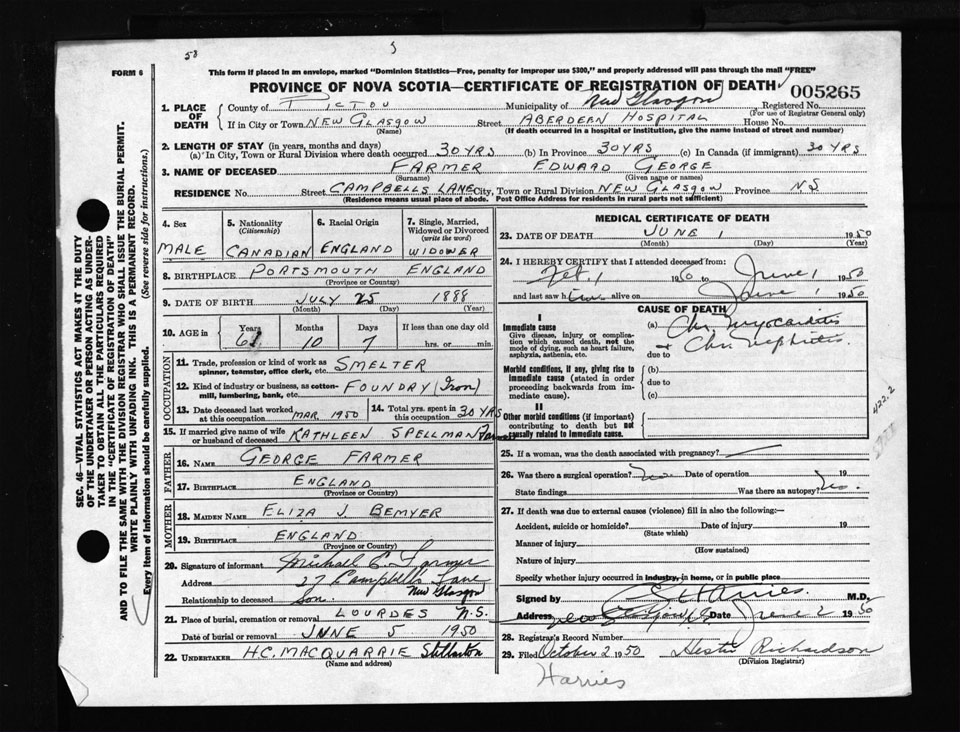 58
FORM 6
This form if placed in an envelope, marked "Dominion Statistics—Free, penalty for improper use $300," and properly addressed will pass through the mail "FREE"
PROVINCE OF NOVA SCOTIA—CERTIFICATE OF REGISTRATION OF DEATH 005265
1. PLACE OF DEATH
County of PICTOU Municipality of New Glasgow Registered No.
(For use of Registrar General only)
If in City or Town NEW GLASGOW Street ABERDEEN HOSPITAL House No.
(Name) (If death occurred in a hospital or institution, give the name instead of street and number)
2. LENGTH OF STAY (in years, months and days)
(a) In City, Town or Rural Division where death occurred 30 YRS (b) In Province 30 YRS (c) In Canada (if immigrant) 30 YRS
3. NAME OF DECEASED FARMER EDWARD GEORGE
(Surname) (Given name or names)
RESIDENCE No. Street CAMPBELLS LANE City, Town or Rural Division NEW GLASGOW Province N.S
(Residence means usual place of abode. Post Office Address for residents in rural parts not sufficient)
4. Sex
MALE
5. Nationality
(Citizenship)
CANADIAN
6. Racial Origin
ENGLAND
7. Single, Married, Widowed or Divorced
(write the word)
WIDOWER
8. BIRTHPLACE PORTSMOUTH ENGLAND
(Province or Country)
9. DATE OF BIRTH JULY 25 1888
(Month) (Day) (Year)
10. AGE in Years Months Days If less than one day old
61 10 7 hrs. or min.
OCCUPATION
11. Trade, profession or kind of work as SMELTER
spinner, teamster, office clerk, etc.
12. Kind of industry or business, as cotton- FOUNDRY (Iron)
mill, lumbering, bank, etc.
13. Date deceased last worked at this occupation MAR 1950
14. Total yrs. spent in this occupation 30 YRS
15. If married give name of wife or husband of deceased KATHLEEN SPELLMAN Farmer
FATHER
16. NAME GEORGE FARMER
17. BIRTHPLACE ENGLAND
(Province or Country)
MOTHER
18. MAIDEN NAME ELIZA J. BEMYER
19. BIRTHPLACE ENGLAND
(Province or Country)
20. Signature of informant Michael C. Farmer
Address 27 Campbells Lane
New Glasgow
Relationship to deceased Son.
21. Place of burial, cremation or removal LOURDES N.S.
Date of burial or removal JUNE 5 1950
22. UNDERTAKER H.C. MACQUARRIE Stellarton
(Name and address)
MEDICAL CERTIFICATE OF DEATH
23. DATE OF DEATH JUNE 1 1950
(Month) (Day) (Year)
24. I HEREBY CERTIFY that I attended deceased from:
Feb. 1 1950 to June 1 1950
and last saw him alive on June 1 1950
CAUSE OF DEATH
I
Immediate cause
Give disease, injury or complication which caused death, not the mode of dying, such as heart failure, asphyxia, asthenia, etc.
(a) Chr. Myocarditis
& Chr. Nephritis.
due to
Morbid conditions, if any, giving rise to immediate cause (stated in order proceeding backwards from immediate cause).
(b)
due to
(c)
II
Other morbid conditions (if important) contributing to death but not causally related to immediate cause.
422.2
25. If a woman, was the death associated with pregnancy?
26. Was there a surgical operation? No Date of operation 19
State findings Was there an autopsy? No.
27. If death was due to external causes (violence) fill in also the following:—
Accident, suicide or homicide? Date of injury 19
(State which)
Manner of injury
(How sustained)
Nature of injury
Specify whether injury occurred in industry, in home, or in public place
Signed by Harries. M.D.
Address New Glasgow Date June 2 1950
28. Registrar's Record Number
29. Filed October 2 1950 Hester Richardson
(Division Registrar)
Harries
SEC. 46—VITAL STATISTICS ACT MAKES IT THE DUTY
OF THE UNDERTAKER OR PERSON ACTING AS UNDER-
TAKER TO OBTAIN ALL THE PARTICULARS REQUIRED
IN THE "CERTIFICATE OF REGISTRATION OF DEATH"
AND TO FILE THE SAME WITH THE DIVISION REGISTRAR WHO SHALL ISSUE THE BURIAL PERMIT.
WRITE PLAINLY WITH UNFADING INK. THIS IS A PERMANENT RECORD.
Every item of Information should be carefully supplied. (See reverse side for instructions.)